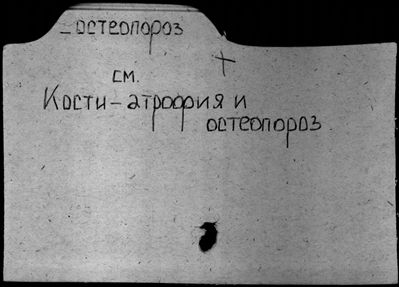 – остеопороз
см.
Кости – атрофия и
остеопороз